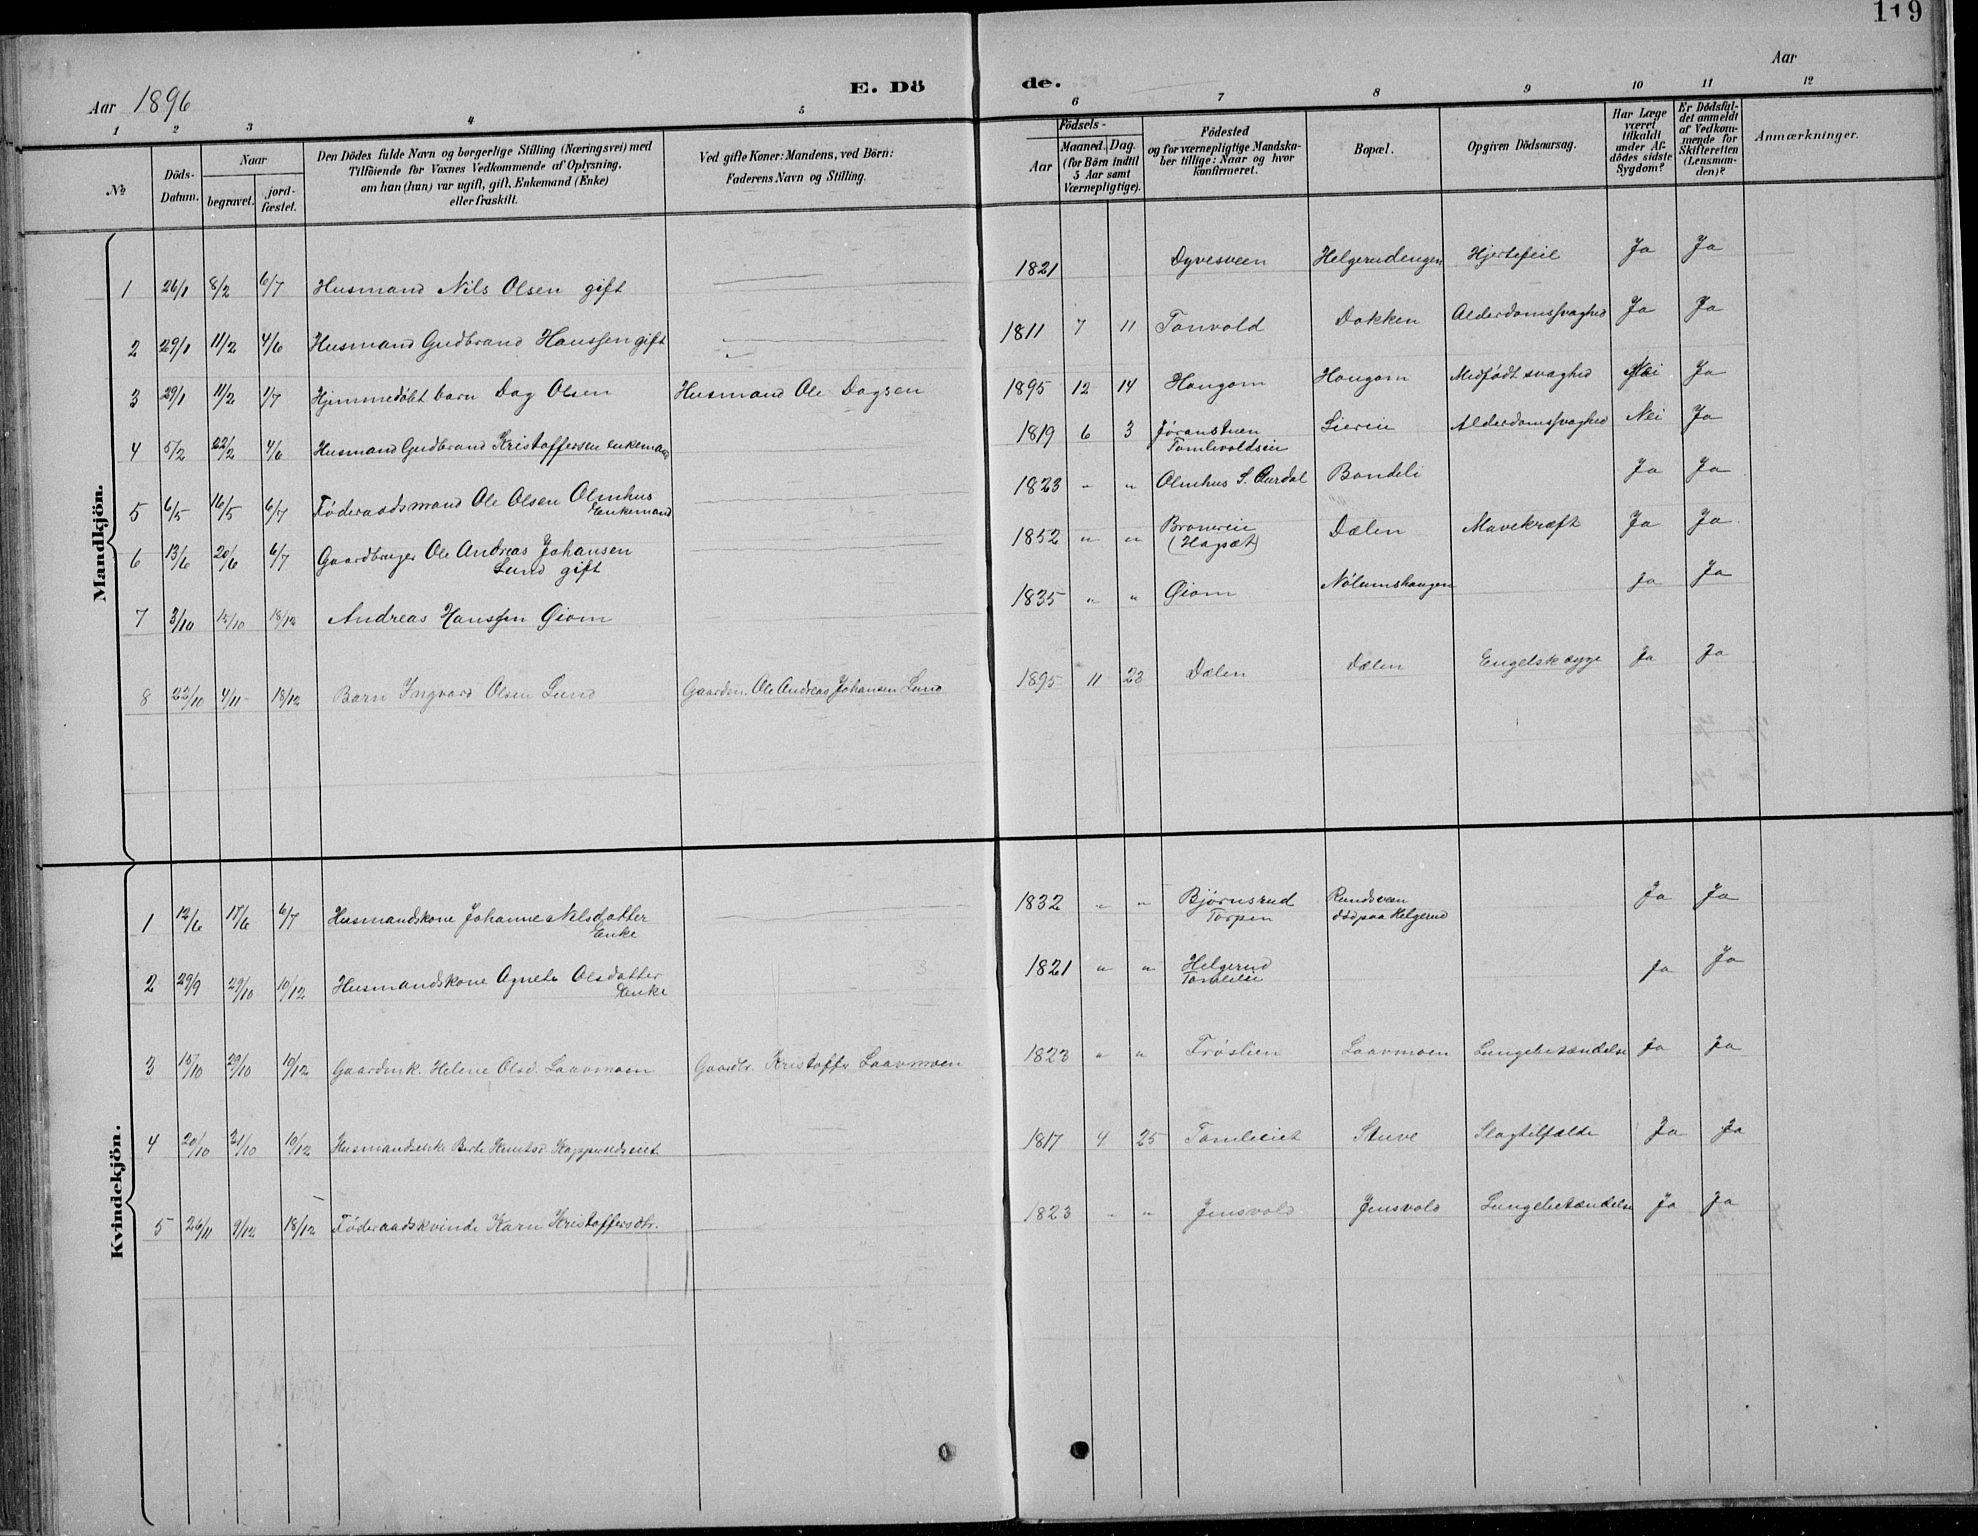 119
Aar 1896
E. Dö de.
Aar
1 2 3 4 5 6 7 8 9 10 11 12
№
Döds-Datum.
Naar
begravet.
jord-fæstet.
Den Dödes fulde Navn og borgerlige Stilling (Næringsvei) med
Tilföiende for Voxnes Vedkommende af Oplysning,
om han (hun) var ugift, gift, Enkemand (Enke)
eller fraskilt.
Ved gifte Koner: Mandens, ved Börn:
Faderens Navn og Stilling.
Födsels-
Aar
Maaned. Dag.
(for Börn indtil
5 Aar samt
Værnepligtige).
Födested
og for værnepligtige Mandska-
ber tillige: Naar og hvor
konfirmeret.
Bopæl.
Opgiven Dödsaarsag.
Har Læge
været
tilkaldt
under Af-
dödes sidste
Sygdom?
Er Dödsfal-
det anmeldt
af Vedkom-
mende for
Skifteretten
(Lensman-
den)?
Anmærkninger.
Mandkjön.
1 26/1 8/2 6/7 Husmand Nils Olsen gift 1821 Dyvesveen Helgerudengen Hjertefeil Ja Ja
2 29/1 11/2 4/6 Husmand Gudbrand Hanssen gift 1811 7 11 Tonvold Dokken Alderdomssvaghed Ja Ja
3 29/1 11/2 1/7 Hjemmedøbt barn Dag Olsen Husmand Ole Dagsen 1895 12 14 Hougom Hougom Medfødt svaghed Nei Ja
4 5/2 22/2 4/6 Husmand Gudbrand Kristoffersen enkemand 1819 6 3 Jøranstuen
Tomlevoldseie Liereie Alderdomssvaghed Nei Ja
5 6/5 16/5 6/7 Føderaadsmand Ole Olsen Olmhus
Enkemand 1823 " " Olmhus S. Aurdal Bondeli Ja Ja
6 13/6 20/6 6/7 Gaardbruger Ole Andreas Johansen
Lund gift 1852 " " Broneeie
(Hagsæt) Dælen Mavekræft Ja Ja
7 3/10 15/10 18/12 Andreas Hanssen Øiom 1835 " " Øiom Nølumshaugen ja Ja
8 22/10 4/11 18/12 Barn Ingvard Olsen Lund Gaardm. Ole Andreas Johansen Lund 1895 11 23 Dælen Dælen Engelsk sygge Ja Ja
Kvindekjön.
1 12/6 17/6 6/7 Husmandskone Johanne Nilsdatter
Enke 1832 " " Bjørnsrud
Torpen Rundsveen
død paa Helgerud Ja Ja
2 29/9 29/10 10/12 Husmandskone Agnete Olsdatter
Enke 1821 " " Helgerud
Tomleeie ja Ja
3 15/10 29/10 10/12 Gaardmk. Helene Olsd. Laavmoen Gaardbr. Kristoffr. Laavmoen 1823 " " Frøslien Laavmoen Lungebetændelse Ja Ja
4 20/10 31/10 10/12 Husmandsenke Berte Knutsd. Kopperudseiet 1817 4 25 Tomleeiet Stuve Slagtilfælde Ja Ja
5 26/11 9/12 18/12 Føderaadskvinde Karn Kristoffersdtr. 1823 " " Jensvold Jensvold Lungebetændelse Ja Ja